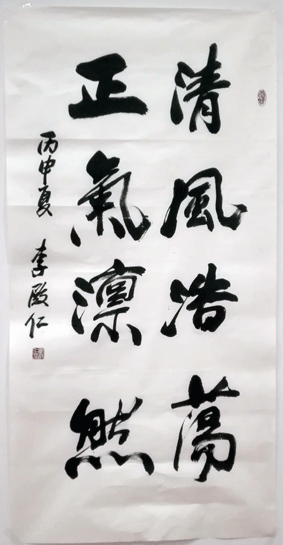 清風浩蕩
正氣凛然
丙申夏 李殿仁